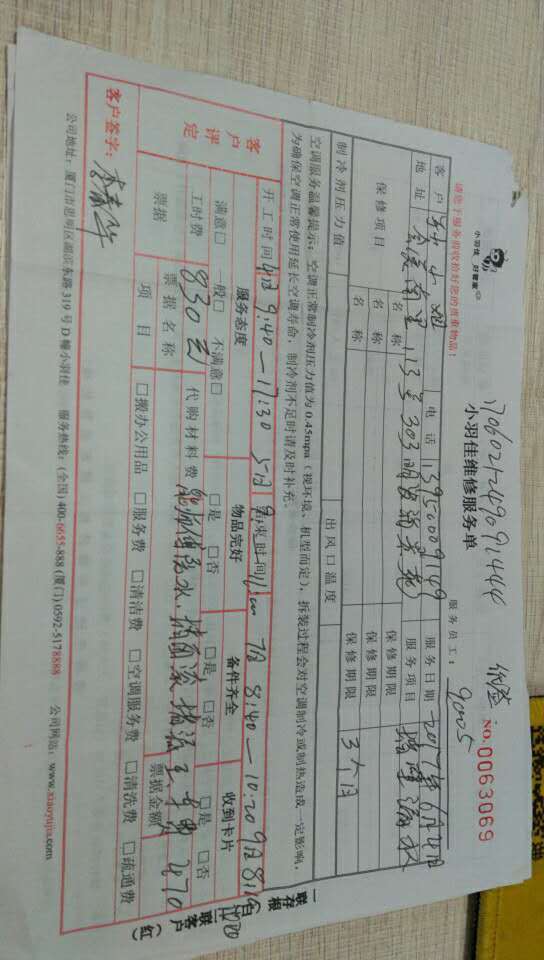 小羽佳 好管家
17060212490091444
小羽佳维修服务单
NO.0063069
请您于服务前收拾好您的贵重物品!
服务员工: 90005
客户 电话 13950009149 服务日期 2017年6月4日
地址 金凌南里113号303 服务项目
保修项目 名称 保修期限
名称 保修期限 3个月
名称 保修期限
制冷剂压力值 出风口温度
空调服务温馨提示:空调正常制冷剂压力值为0.45mpa(视环境、机型而定),拆装过程会对空调制冷或制热造成一定影响,
为确保空调正常使用延长空调寿命,制冷剂不足时请及时补充。
开工时间 4日9:40—17:30 5日 结束时间 7日8:40—10:20 9日
客户评定 服务态度 物品完好 备件齐全 收到卡片
满意□ 一般□ 不满意□ □是 □否 □是 □否 □是 □否
工时费 830元 代购材料费
票据 票据名称 票据金额 470
项目 □搬办公用品 □服务费 □清洁费 □空调服务费 □清洗费 □疏通费
客户签字:
公司地址:厦门市思明区湖滨东路319号D幢小羽佳 服务热线:(全国)400-6655-888 (厦门)0592-5178888 公司网站:www.xiaoyujia.com
一联存根(白)
二联客户(红)